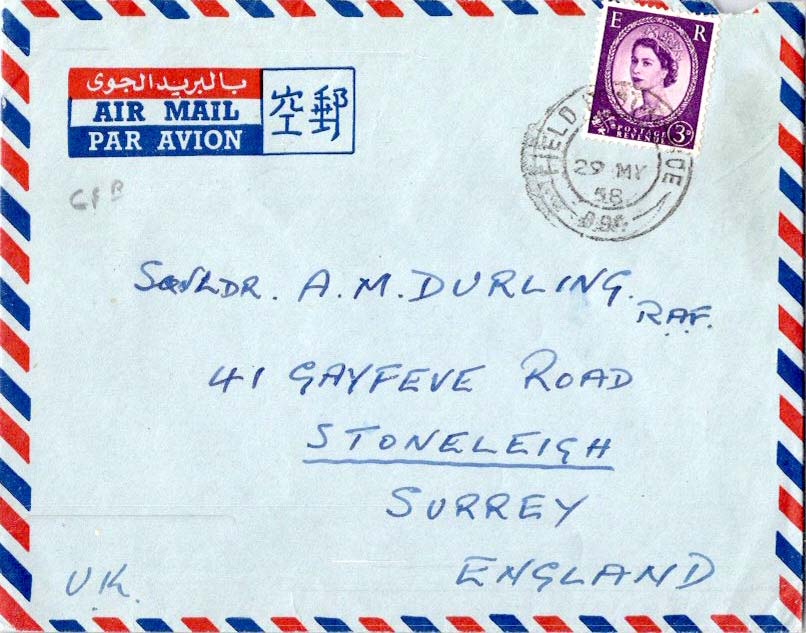 بالبريد الجوى
AIR MAIL
PAR AVION
空郵
E R
POSTAGE
REVENUE
3D
FIELD
29 MY
58
GFB
SQN LDR. A. M. DURLING.
R.A.F.
41 GAYFEVE ROAD
STONELEIGH
SURREY
ENGLAND
U.K.